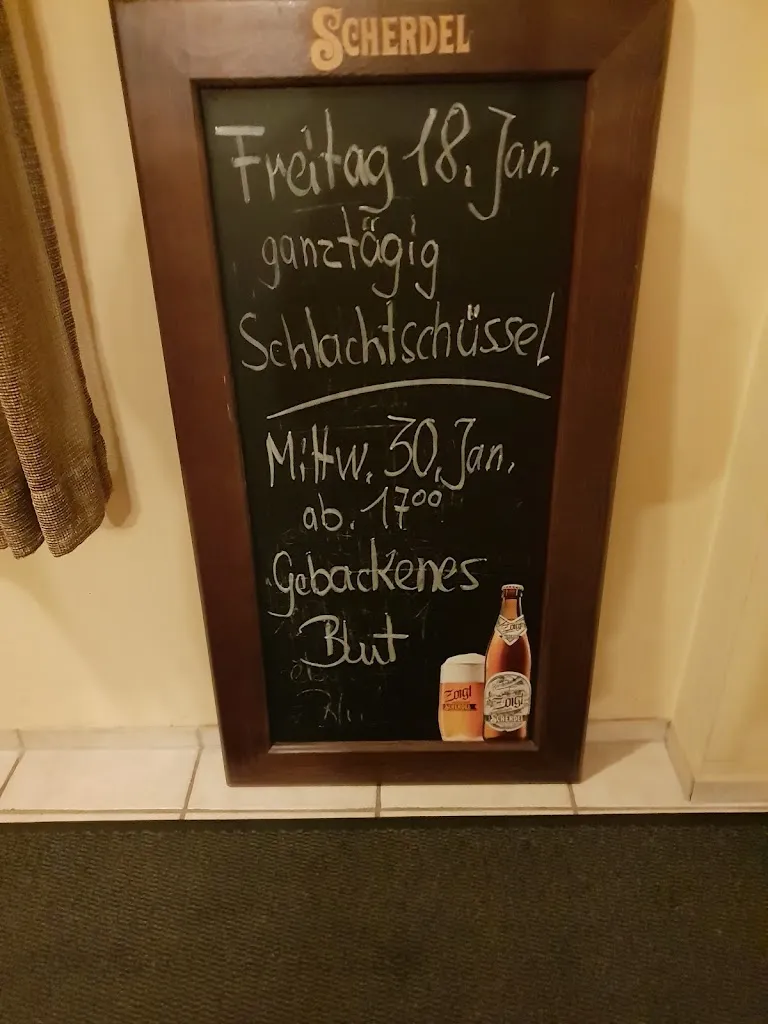 SCHERDEL
Freitag 18. Jan.
ganztägig
Schlachtschüssel
Mittw. 30. Jan.
ab. 17⁰⁰
Gebackenes
Blut
Zoigl
Zoigl
SCHERDEL
Zoigl
SCHERDEL